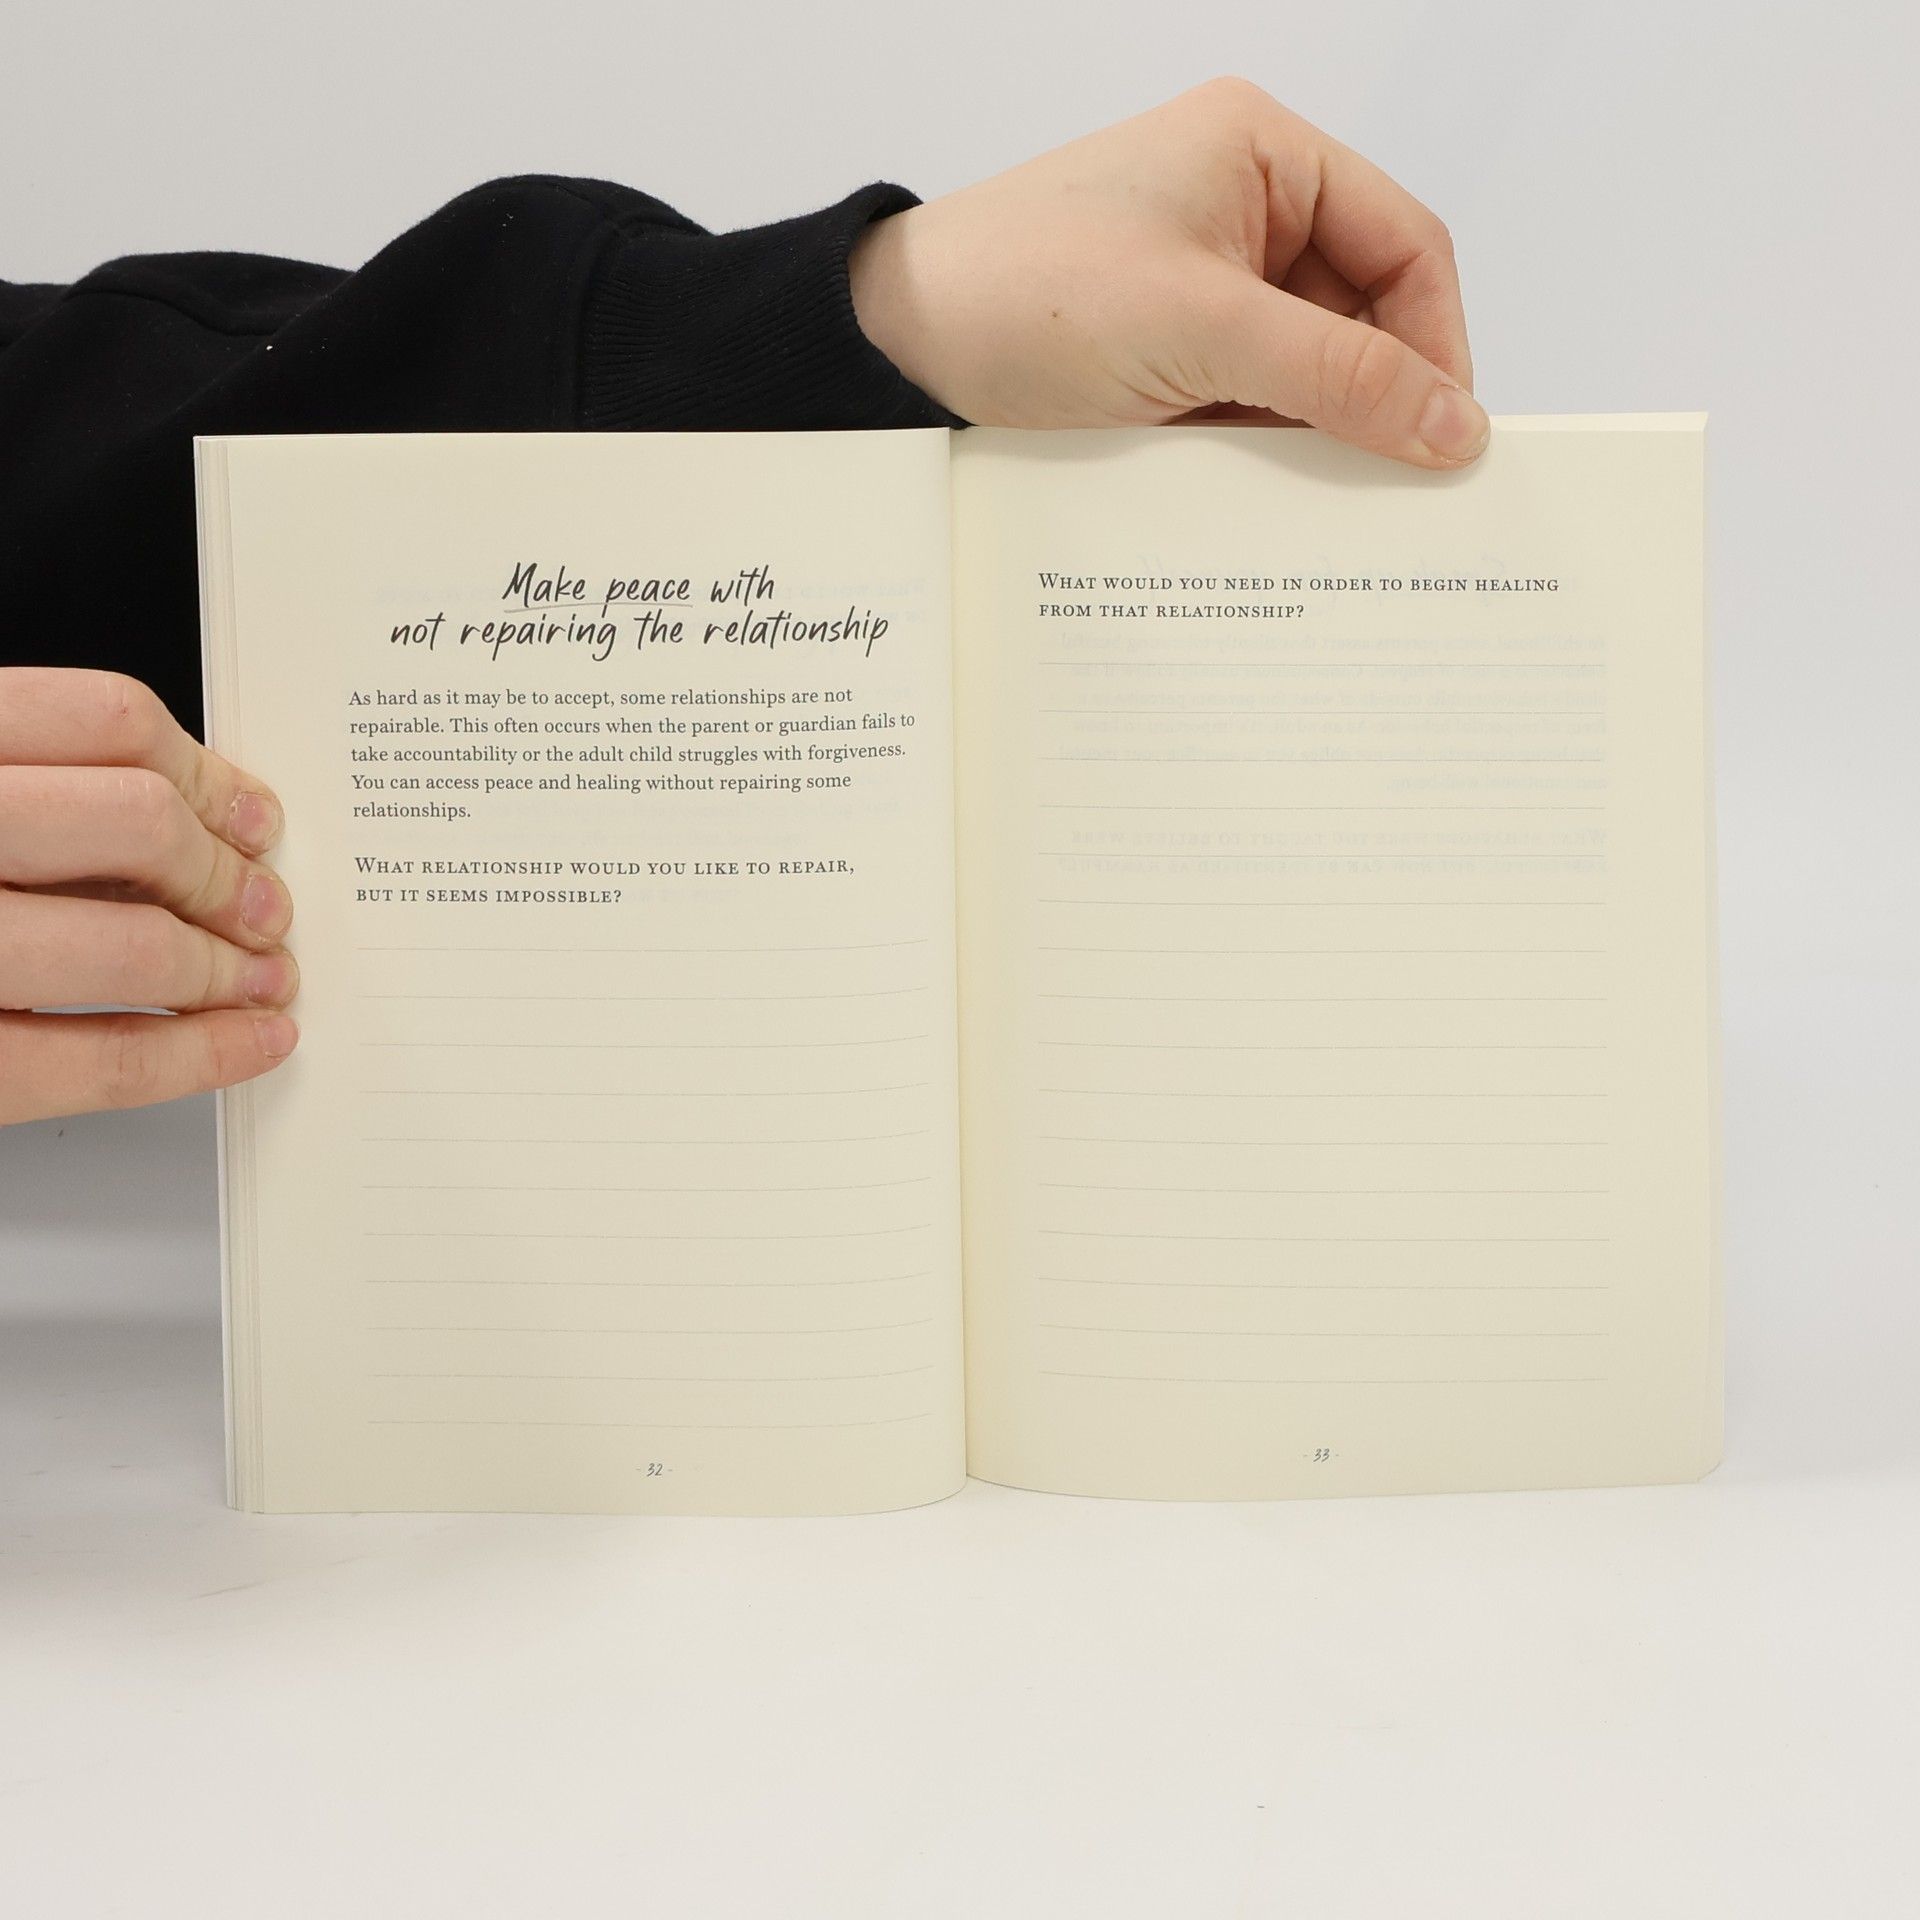 Make peace with
not repairing the relationship
As hard as it may be to accept, some relationships are not
repairable. This often occurs when the parent or guardian fails to
take accountability or the adult child struggles with forgiveness.
You can access peace and healing without repairing some
relationships.
What relationship would you like to repair,
but it seems impossible?
- 32 -
What would you need in order to begin healing
from that relationship?
- 33 -